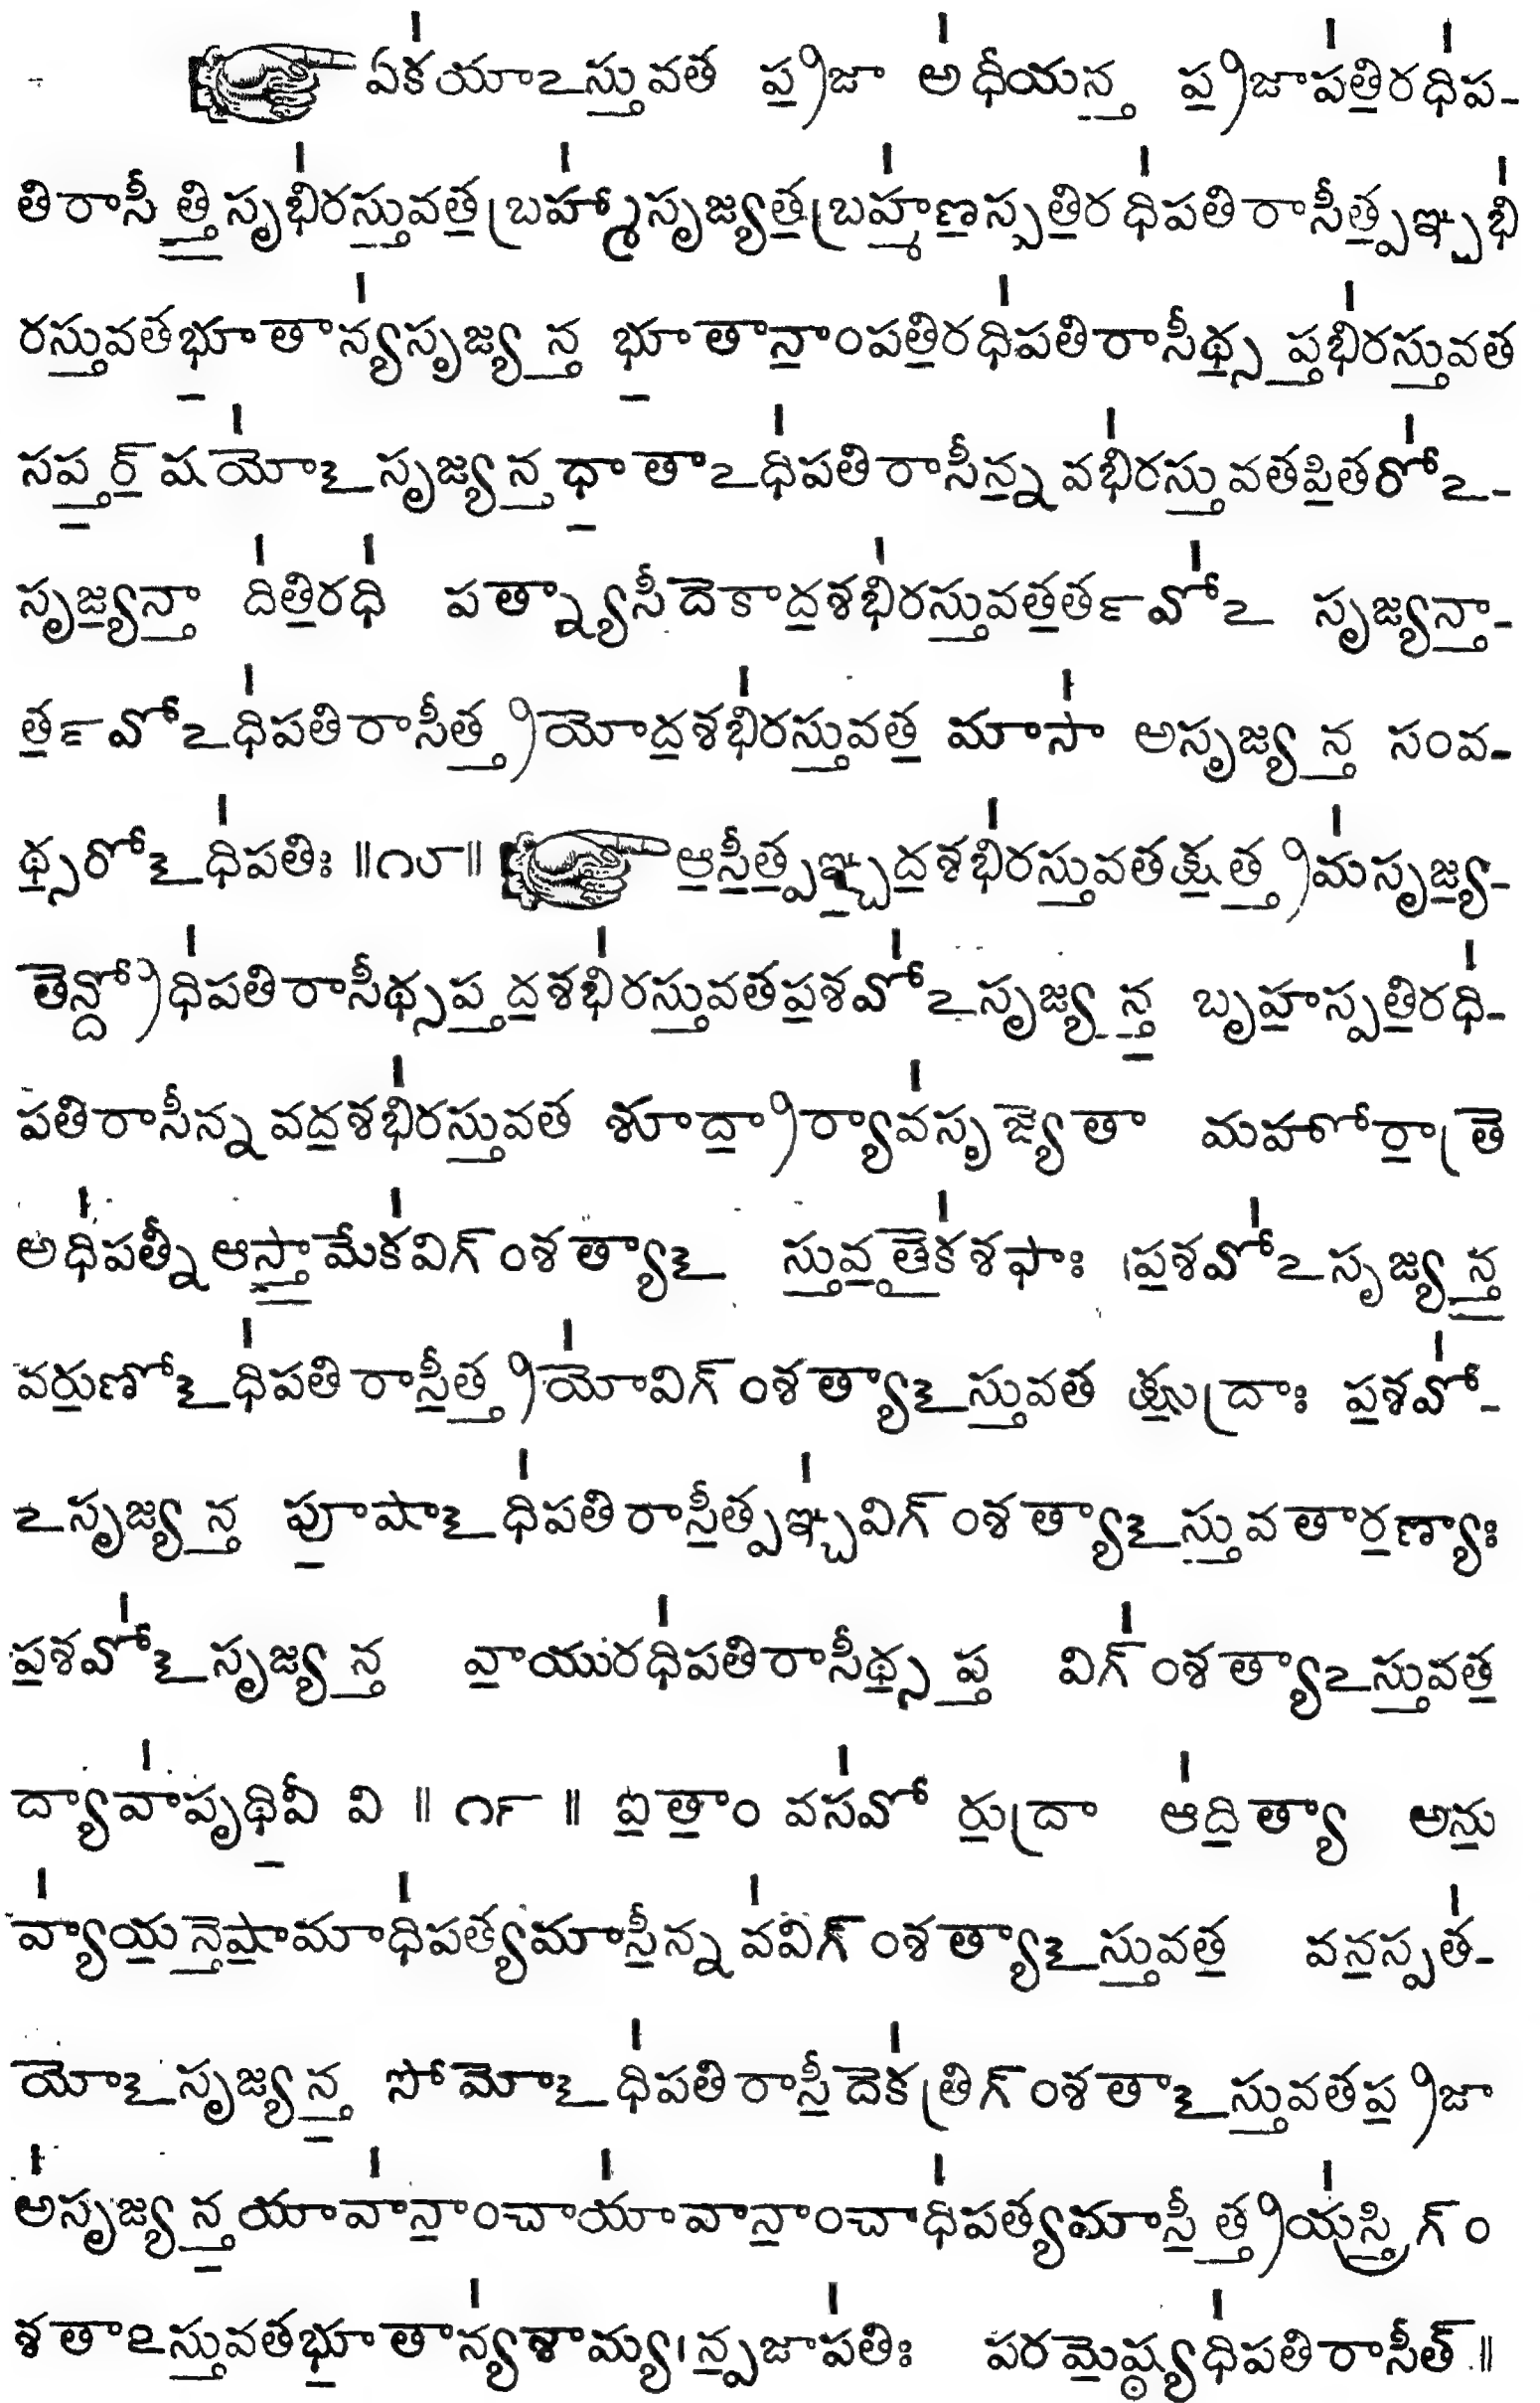 ఏక॑యాఽస్తు॒వత ప్ర॒జా అ॑ధీయన్త॒ ప్ర॒జాప॑తి॒రధి॑ప-
తిరాసీత్తి॒సృభి॑రస్తు॒వత॒ బ్రహ్మా॑సృజ్యత॒ బ్రహ్మ॑ణ॒స్పతి॒రధి॑పతిరాసీత్ప॒ఞ్చభి॑
రస్తు॒వతభూ॒తాన్య॑సృజ్యన్త॒ భూ॒తానాం॒పతి॒రధి॑పతిరాసీథ్స॒ప్తభి॑రస్తు॒వత
సప్త॒ర్‌షయో॑ఽసృజ్యన్త॒ ధా॒తాఽధి॑పతిరాసీన్న॒వభి॑రస్తు॒వతపి॒తరో॑ఽ-
సృజ్య॒న్తా ది॑తి॒రధి॑ పత్న్యాసీదేకాద॒శభి॑రస్తు॒వత॒ర్తవో॑ఽ సృజ్యన్తా॒-
ర్త॒వోఽధి॑పతిరాసీత్త్ర॒యోద॒శభి॑రస్తు॒వత॒ మాసా॑ అసృజ్యన్త॒ సంవ-
థ్స॒రోఽధి॑పతిః ॥౧౮॥ ఆ॒సీ॒త్ప॒ఞ్చ॒ద॒శభి॑రస్తు॒వతక్ష॒త్త్రమ॑సృజ్య॒-
తేన్ద్రోధి॑పతిరాసీథ్సప్త॒ద॒శభి॑రస్తు॒వతప॒శవో॑ఽసృజ్యన్త॒ బృహ॒స్పతి॒రధి॑-
పతిరాసీన్నవద॒శభి॑రస్తు॒వత శూద్రా॒ర్యావ॑సృజ్యేతా మహోరా॒త్రే
అధి॑పత్నీ ఆస్తా॒మేక॑విగ్‌ంశత్యాఽ స్తు॒వ॒తైక॑శఫాః ప॒శవో॑ఽసృజ్యన్త॒
వరు॒ణోఽధి॑పతిరాసీ॒త్త్రయో॑విగ్‌ంశత్యాఽస్తు॒వత క్షు॒ద్రాః ప॒శవో॑-
ఽసృజ్యన్త॒ పూ॒షాఽధి॑పతిరాసీ॒త్పఞ్చ॑విగ్‌ంశత్యాఽస్తు॒వతార॒ణ్యాః
ప॒శవో॑ఽసృజ్యన్త॒ వా॒యురధి॑పతిరాసీథ్స॒ప్త విగ్‌ం॑శత్యాఽస్తు॒వత॒
ద్యావా॑పృథి॒వీ వి ॥ ౧౯ ॥ ఐ॒తాం॒ వస॑వో రు॒ద్రా ఆ॑ది॒త్యా అను॒
వ్యా॑య॒న్తేషా॒మాధి॑పత్యమాసీ॒న్నవ॑విగ్‌ంశత్యాఽస్తు॒వత॒ వన॒స్పత॑-
యోఽసృజ్యన్త॒ సోమోఽధి॑పతిరాసీ॒దేక॑త్రిగ్‌ంశతాఽస్తు॒వతప్ర॒జా
అ॑సృజ్యన్త॒ యావా॑నాం॒చాయా॑వానాం॒చాధి॑పత్యమాసీ॒త్త్రయ॑స్త్రిగ్‌ం
శతాఽస్తు॒వతభూ॒తాన్య॑శామ్యన్ప్ర॒జాప॑తిః పరమే॒ష్ఠ్యధి॑పతిరాసీత్ ॥